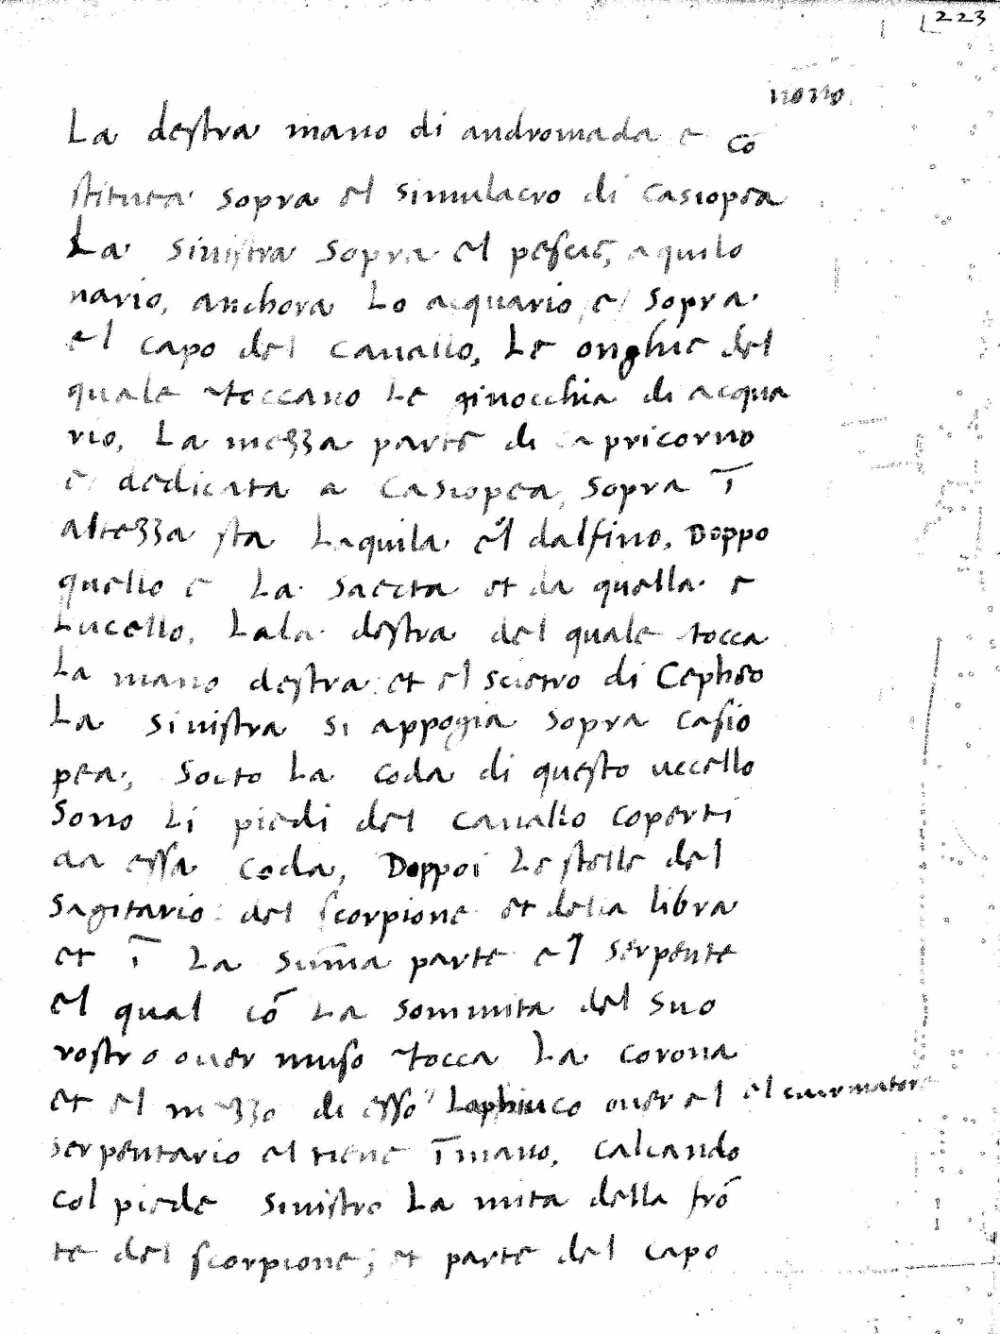 223
nono
La destra mano di andromada e cō
stituita sopra el simulacro di casiopea
La sinistra sopra el pescie, aquilo
nario, anchora Lo acquario, e sopra
el capo del cauallo, Le onghie del
quale toccano Le ginocchia di acqua
rio, La mezza parte di capricorno
e dedicata a Casiopea, sopra ī
altezza sta Laquila el dalfino, Doppo
quello e La saecta et da quella e
Lucello, Lala destra del quale tocca
La mano destra et el scietro di Cepheo
La sinistra si appogia sopra casio
pea, Socto La coda di questo uccello
Sono Li piedi del cauallo coperti
da essa coda, Doppoi Le stelle del
Sagitario del scorpione et della libra
et ī La sūma parte el serpente
el qual cō La sommita del suo
rostro ouer muso tocca La corona
et el mezzo di esso Lophiuco ouer el el ciurmatore
serpentario el tiene īmano, calcando
col piede sinistro La mita della frō
te del scorpione; et parte del capo